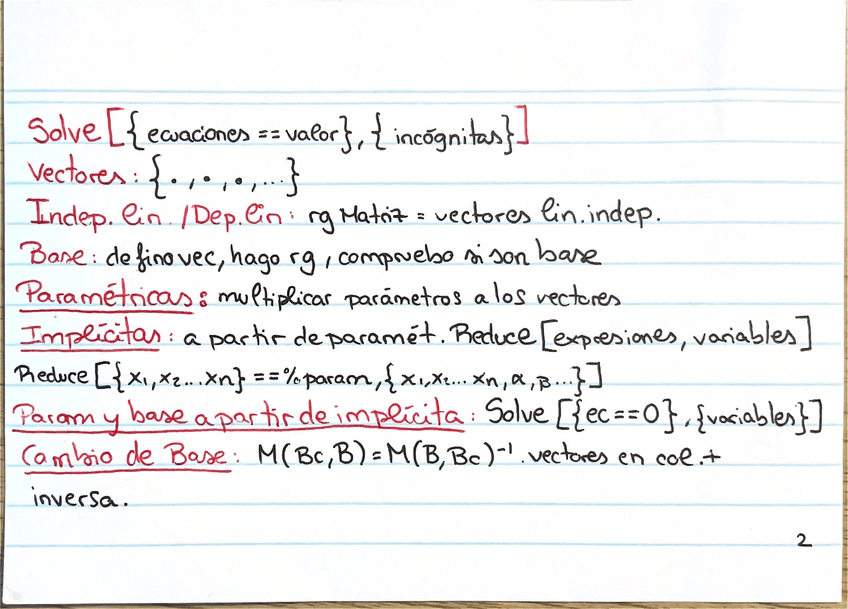 Solve [{ecuaciones == valor}, {incógnitas}]
Vectores: {·, ·, ·, ...}
Indep. lin. / Dep. lin: rg Matriz = vectores lin. indep.
Base: defino vec, hago rg, compruebo si son base
Paramétricas: multiplicar parámetros a los vectores
Implícitas: a partir de paramét. Reduce [expresiones, variables]
Reduce [{x₁, x₂... xn} == % param, {x₁, x₂... xn, α, β...}]
Param y base a partir de implícita: Solve [{ec == 0}, {variables}]
Cambio de Base: M(Bc, B) = M(B, Bc)⁻¹. vectores en col. +
inversa.
2